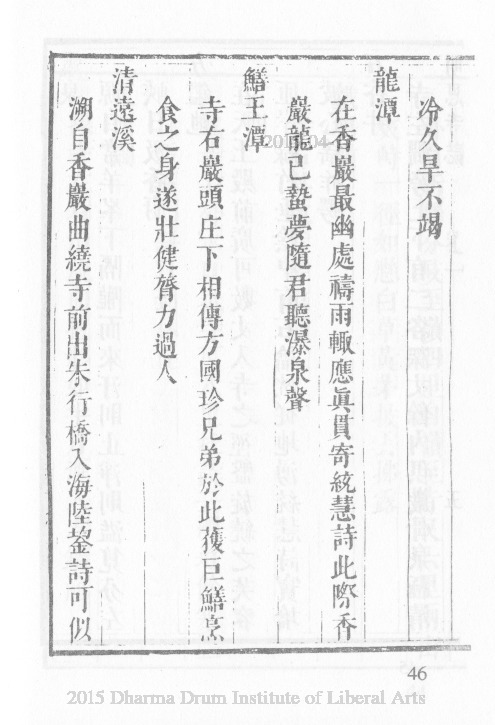 冷久旱不竭
龍潭
在香嚴最幽處禱雨輙應眞貫寄統慧詩此際香
嚴龍已蟄夢隨君聽瀑泉聲
鱔王潭
寺右巖頭庄下相傳方國珍兄弟於此獲巨鱔烹
食之身遂壯健膂力過人
清遠溪
溯自香嚴曲繞寺前出朱行橋入海陸鋆詩可似
46
2015 Dharma Drum Institute of Liberal Arts